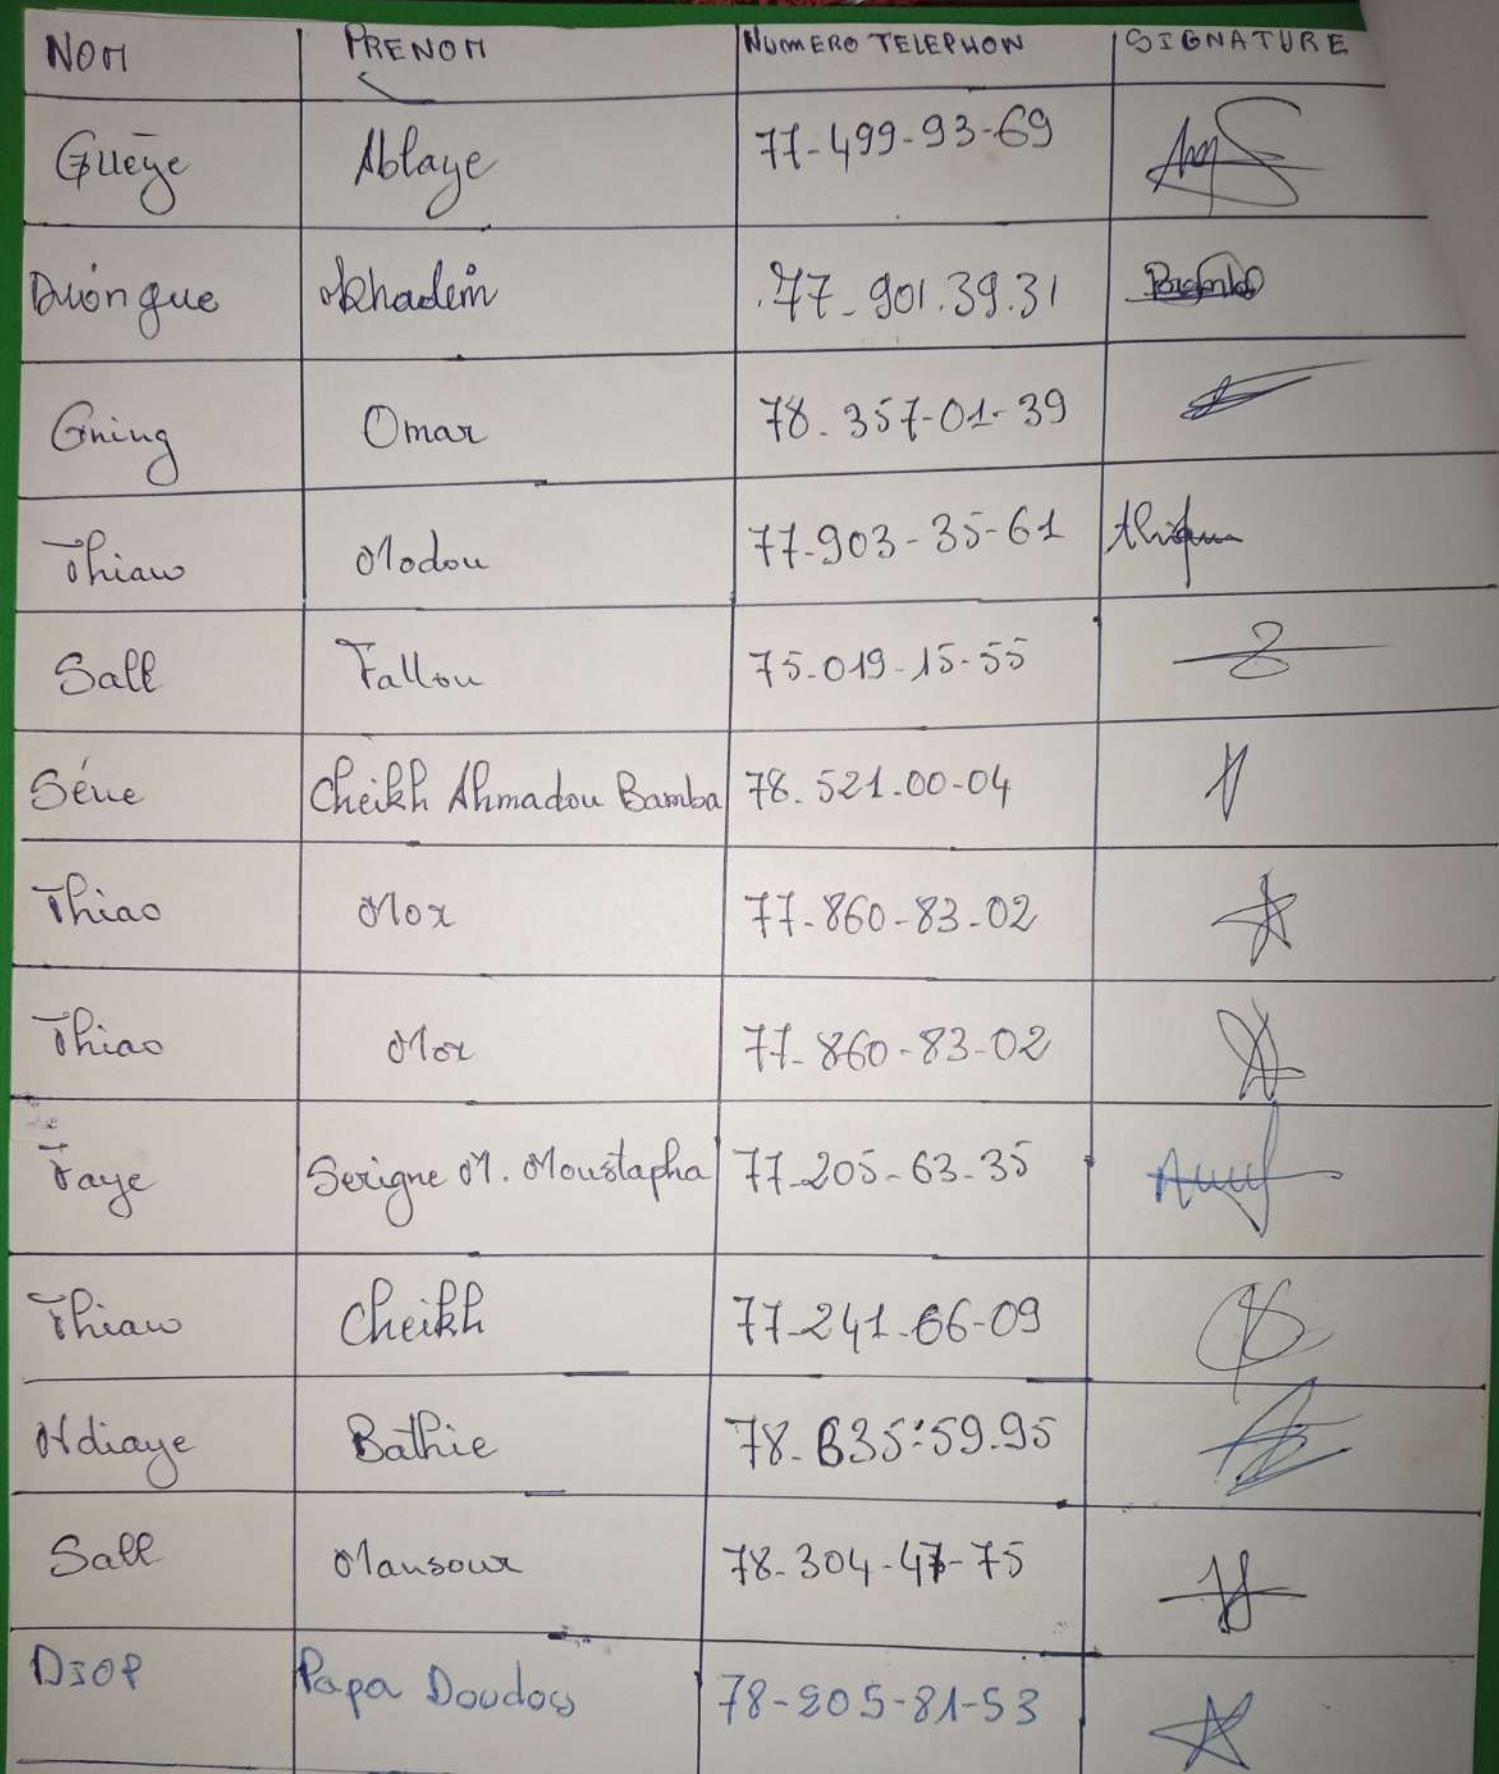 NOM PRENOM NUMERO TELEPHON SIGNATURE
Guèye Ablaye 77-499-93-69
Diongue Khadim 77-901.39.31
Gning Omar 78.357-01-39
Thiaw Modou 77-903-35-61
Sall Fallou 75-019-15-55
Séne Cheikh Ahmadou Bamba 78.521.00-04
Thiao Mor 77-860-83-02
Thiao Mor 77-860-83-02
Faye Serigne M. Moustapha 77-205-63-35
Thiaw Cheikh 77-241.66-09
Ndiaye Bathie 78-635-59.95
Sall Mansour 78-304-47-75
DIOP Papa Doudou 78-205-81-53